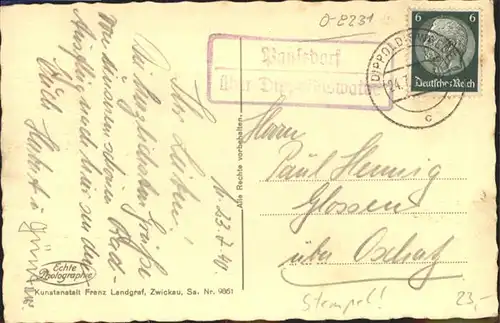 O-8231
Paulsdorf
über Dippoldiswalde
DIPPOLDISWALDE
24.7.
c
6 6
Deutsches Reich
Alle Rechte vorbehalten.
Herrn
Paul Hennig
Glossen
über Oschatz
Stempel!
23,-
N. 23.7.40.
Ihr Lieben!
Die herzlichsten Grüße
von unserem schönen Rad-
Ausflug nach hier sendet
Euch Herbert u.
Echte
Photographie
Kunstanstalt Franz Landgraf, Zwickau, Sa. Nr. 9851